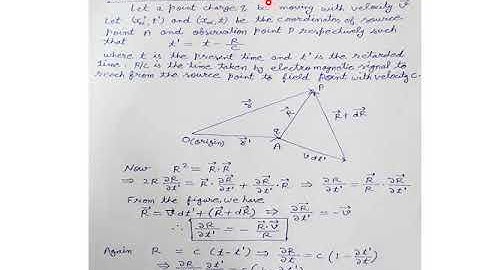 Let a point charge q be moving with velocity v⃗
Let (xα', t') and (xα, t) be the coordinates of source
point A and observation point P respectively such
that t' = t - R/c
where t is the present time and t' is the retarded
time. R/c is the time taken by electromagnetic signal to
reach from the source point to field point with velocity c.
P
R⃗
R⃗ + dR⃗
q
O(origin)
A
v⃗dt'
Now R² = R⃗·R⃗
⇒ 2R ∂R/∂t' = R⃗·∂R⃗/∂t' + ∂R⃗/∂t'·R⃗ ⇒ ∂R/∂t' = R⃗/R·∂R⃗/∂t'
From the figure, we have
R⃗ = v⃗dt' + (R⃗ + dR⃗) ⇒ ∂R⃗/∂t' = -v⃗
∴ ∂R/∂t' = - R⃗·v⃗/R
Again R = c (t-t') ⇒ ∂R/∂t = c(1 - ∂t'/∂t)